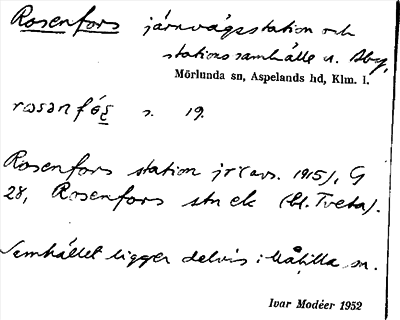 Rosenfors järnvägsstation och
stationssamhälle u. Åby,
Mörlunda sn, Aspelands hd, Klm. l.
rosənfos s. 19.
Rosenfors station jr(avs. 1915), G
28, Rosenfors stn ek (bl. Tveta).
Samhället ligger delvis i Målilla sn.
Ivar Modéer 1952